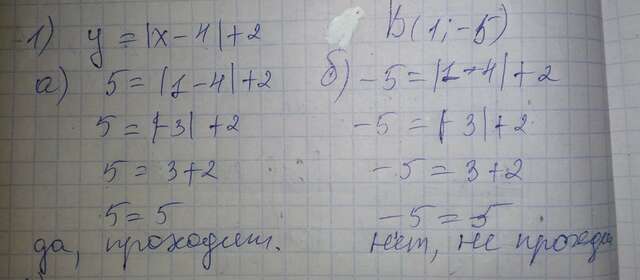 1) y = |x - 4| + 2 B(1; -5)
а) 5 = |1 - 4| + 2 б) -5 = |1 - 4| + 2
5 = |-3| + 2 -5 = |-3| + 2
5 = 3 + 2 -5 = 3 + 2
5 = 5 -5 = 5
да, проходит. нет, не проходи